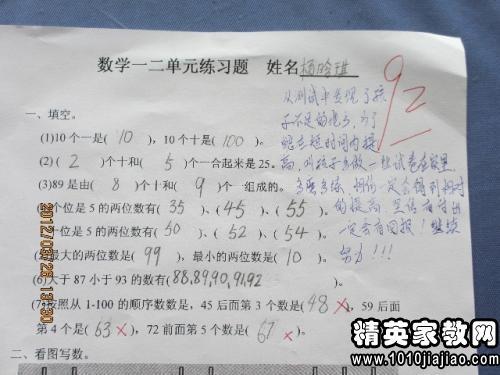 数学一二单元练习题 姓名杨晗琪
92
从测试中发现了孩
子不足的地方，为了
能在短的时间内提
高，叫孩子多做一些试卷在家里
多强多练，相信一定会得到相对
的提高，
一定会有回报！继续
努力！！！
一、填空。
(1)10个一是( 10 )，10个十是( 100 )。
(2)( 2 )个十和( 5 )个一合起来是25。
(3)89是由( 8 )个十和( 9 )个一组成的。
个位是5的两位数有( 35 )、( 45 )、( 55 )。
十位是5的两位数有( 50 )、( 52 )、( 54 )。
最大的两位数是( 99 )，最小的两位数是( 10 )。
(6)大于87小于93的数有(88,89,90,91,92 )。
(7)按照从1-100的顺序数数是，45后而第3个数是( 48 × )，59后面
第4个是( 63 × )，72前面第5个数是( 67 × )。
二、看图写数。
2012/03/28 19:30
精英家教网
www.1010jiajiao.com